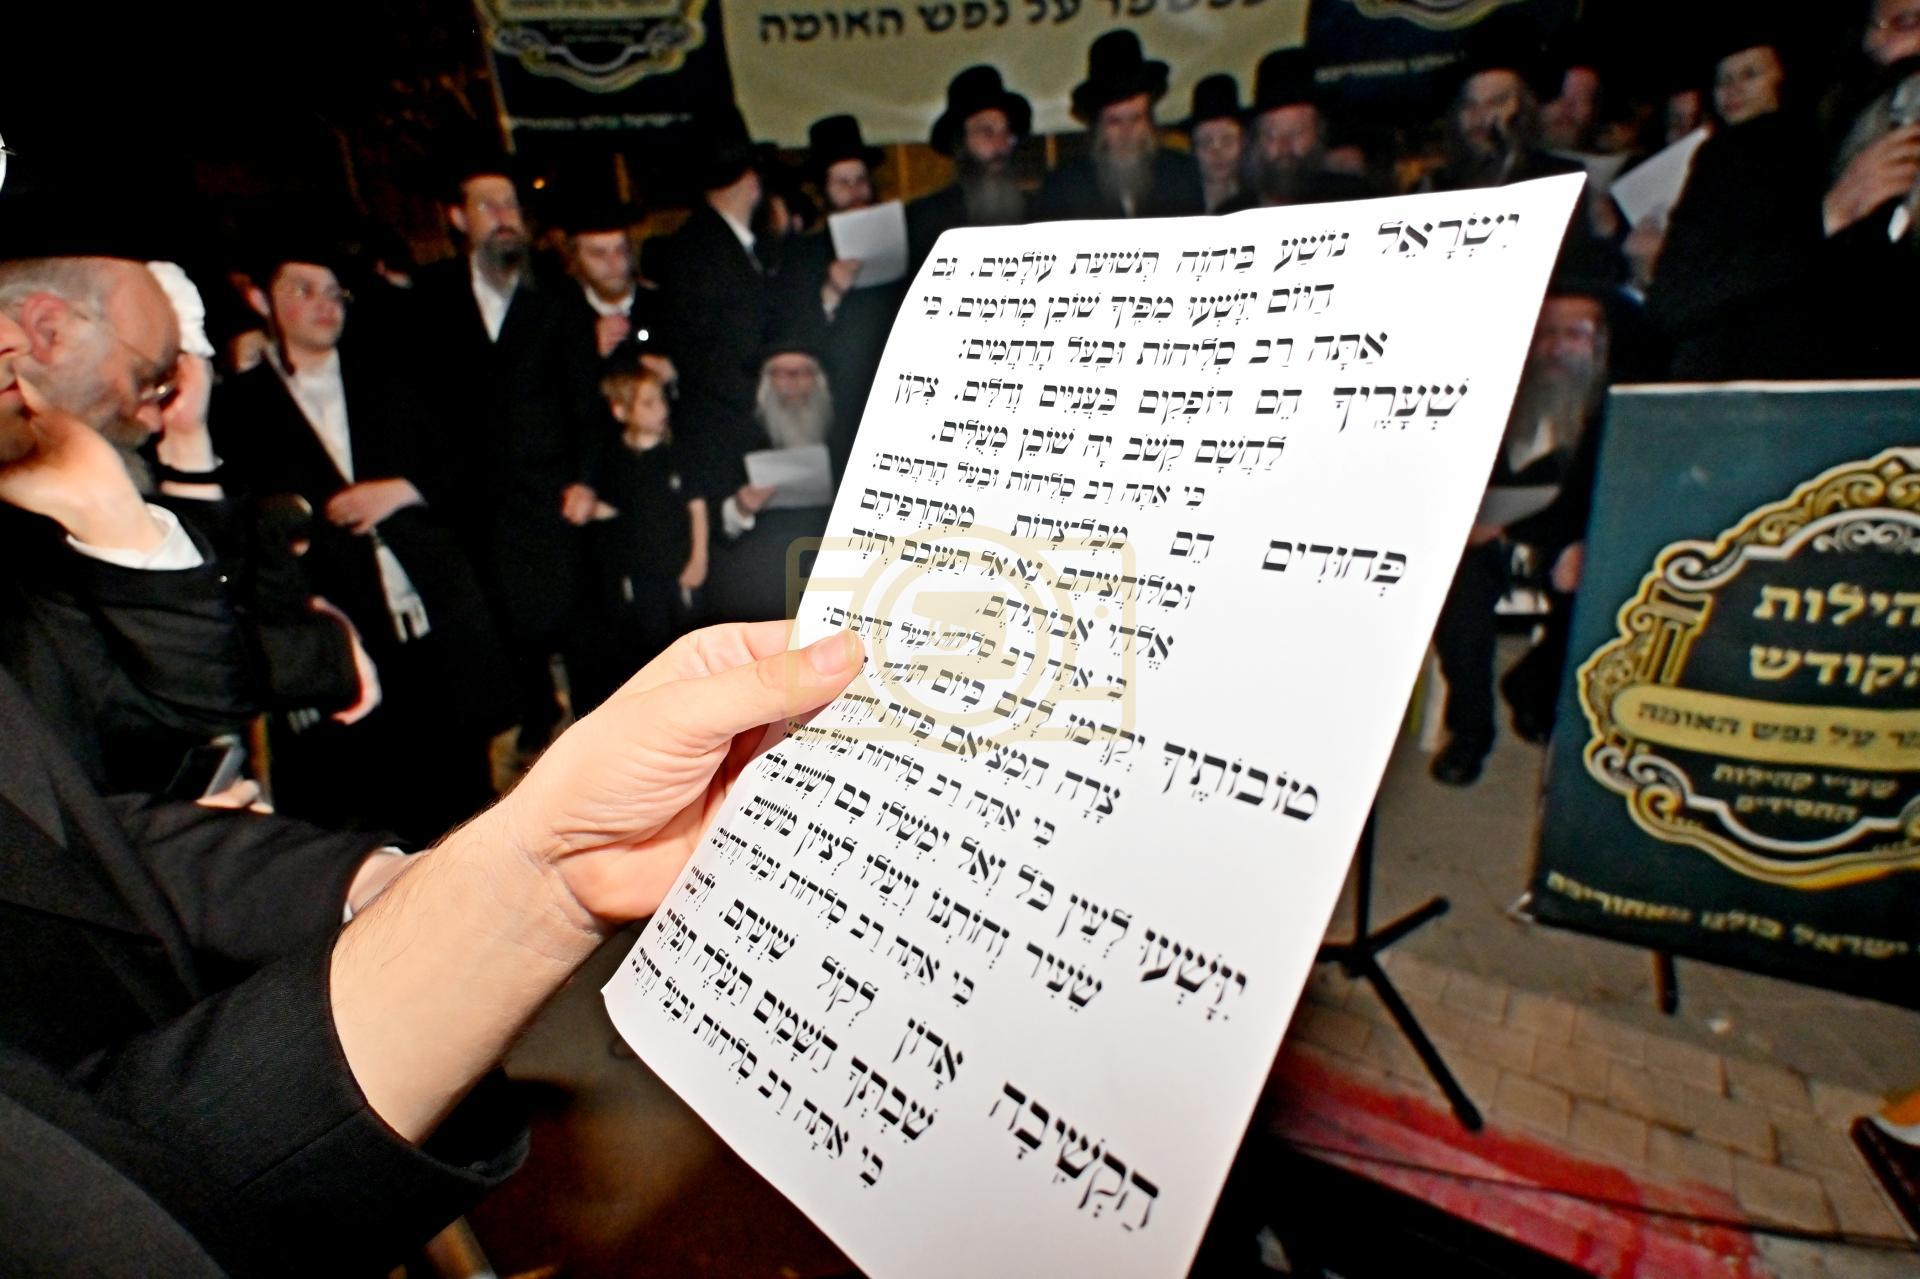 על נפש האומה
יִשְׂרָאֵל נוֹשַׁע בַּיהוָֹה תְּשׁוּעַת עוֹלָמִים. גַּם
הַיּוֹם יִוָּשְׁעוּ מִפִּיךָ שׁוֹכֵן מְרוֹמִים. כִּי
אַתָּה רַב סְלִיחוֹת וּבַעַל הָרַחֲמִים:
שְׁעָרֶיךָ הֵם דּוֹפְקִים כַּעֲנִיִּים וְדַלִּים. צְקוֹן
לַחֲשָׁם קְשֹׁב יָהּ שׁוֹכֵן מְעֻלִּים.
כִּי אַתָּה רַב סְלִיחוֹת וּבַעַל הָרַחֲמִים:
פְּחוּדִים הֵם מִכָּל־צָרוֹת מִמְּחָרְפֵיהֶם
וּמִלּוֹחֲצֵיהֶם. נָא אַל תַּעַזְבֵם יְהֹוָה
אֱלֹהֵי אֲבוֹתֵיהֶם.
כִּי אַתָּה רַב סְלִיחוֹת וּבַעַל הָרַחֲמִים:
טוֹבוֹתֶיךָ יְקַדְּמוּ לָהֶם בְּיוֹם תּוֹכֵחָה.
צָרָה הַמְצִיאֵם פְּדוּת וּרְוָחָה.
כִּי אַתָּה רַב סְלִיחוֹת וּבַעַל הָרַחֲמִים:
יִוָּשְׁעוּ לְעֵין כֹּל וְאַל יִמְשְׁלוּ בָם רְשָׁעִים. כַּלֵּה
שֵׂעִיר וְחוֹתְנוֹ וְיַעֲלוּ לְצִיּוֹן מוֹשִׁיעִים.
כִּי אַתָּה רַב סְלִיחוֹת וּבַעַל הָרַחֲמִים:
הַקְשִׁיבָה אָדוֹן לְקוֹל שַׁוְעָתָם. וְלִמְכוֹן
שִׁבְתְּךָ הַשָּׁמַיִם תַּעֲלֶה תְפִלָּתָם.
כִּי אַתָּה רַב סְלִיחוֹת וּבַעַל הָרַחֲמִים:
הקודש
על נפש האומה
שע״י קהילות
החסידים
ישראל כולנו מאחוריכם